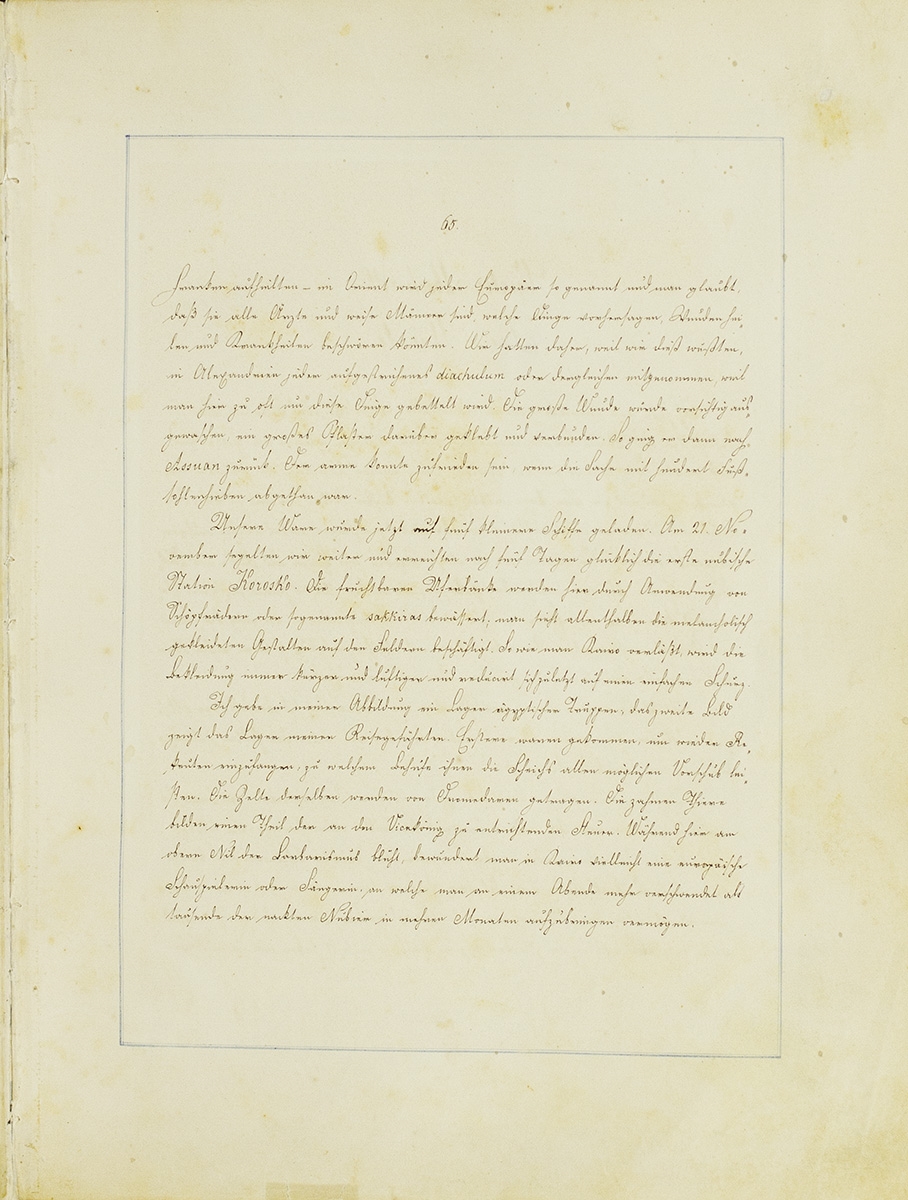 65.
Franken aufhielten – im Orient wird jeder Europäer so genannt und man glaubt,
daß sie alle Ärzte und weise Männer sind, welche Dinge vorhersagen, Wunden hei-
len und Krankheiten beschwören könnten. Wir hatten daher, weil wir dieß wußten,
in Alexandrien jeder aufgestrichenes diachulum oder dergleichen mitgenommen, weil
man hier zu oft um diese Dinge gebettelt wird. Die große Wunde wurde vorsichtig aus-
gewaschen, ein großes Pflaster darüber geklebt und verbunden. So ging er dann nach
Assuan zurück. Der arme konnte zufrieden sein wenn die Sache mit hundert Fuß-
sohlenhieben abgethan war.
Unsere Ware wurde jetzt auf fünf kleinere Schiffe geladen. Am 21. No-
vember segelten wir weiter und erreichten nach fünf Tagen glücklich die erste nubische
Station Korosko. Die fruchtbaren Uferbänke werden hier durch Anwendung von
Schöpfrädern oder sogenannte sakkiras bewässert, man sieht allenthalben die melancholisch
gekleideten Gestalten auf den Feldern beschäftigt. So wie man Kairo verläßt, wird die
Bekleidung immer kürzer und luftiger und reducirt sich zuletzt auf einen einfachen Schurz.
Ich gebe in meiner Abbildung ein Lager ägyptischer Truppen, das zweite Bild
zeigt das Lager meiner Reisegefährten. Erstere waren gekommen, um wieder Re-
kruten einzufangen, zu welchem Behufe ihnen die Scheichs allen möglichen Vorschub lei-
sten. Die Zelte derselben werden von Dromedaren getragen. Die zahmen Thiere
bilden einen Theil der an den Vicekönig zu entrichtenden Steuer. Während hier am
obern Nil der Barbarismus blüht, bewundert man in Kairo vielleicht eine europäische
Schauspielerin oder Sängerin, an welche man an einem Abende mehr verschwendet als
tausende der nackten Nubier in mehren Monaten aufzubringen vermögen.